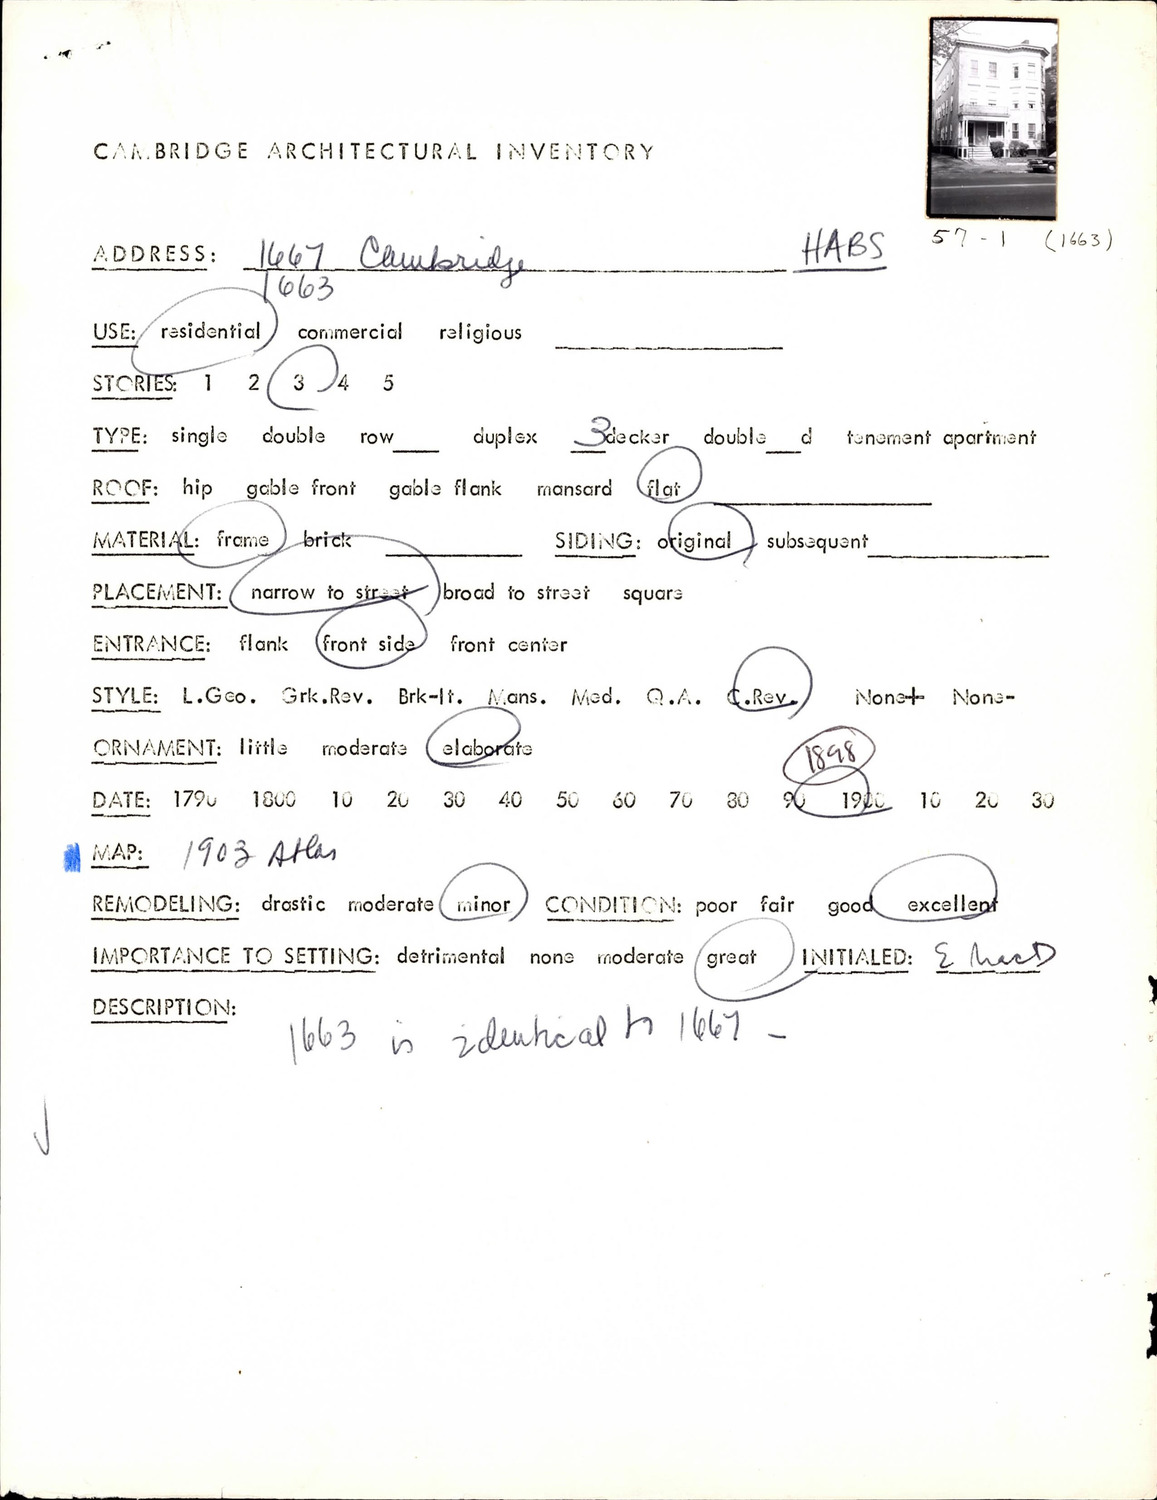 CAMBRIDGE ARCHITECTURAL INVENTORY
57-1 (1663)
ADDRESS: 1667 Cambridge HABS
1663
USE: residential commercial religious
STORIES: 1 2 3 4 5
TYPE: single double row duplex 3decker double d tenement apartment
ROOF: hip gable front gable flank mansard flat
MATERIAL: frame brick SIDING: original subsequent
PLACEMENT: narrow to street broad to street square
ENTRANCE: flank front side front center
STYLE: L.Geo. Grk.Rev. Brk-It. Mans. Med. Q.A. C.Rev. None+ None-
ORNAMENT: little moderate elaborate
1898
DATE: 1790 1800 10 20 30 40 50 60 70 80 90 1900 10 20 30
MAP: 1903 Atlas
REMODELING: drastic moderate minor CONDITION: poor fair good excellent
IMPORTANCE TO SETTING: detrimental none moderate great INITIALED: E MacD
DESCRIPTION:
1663 is identical to 1667 -